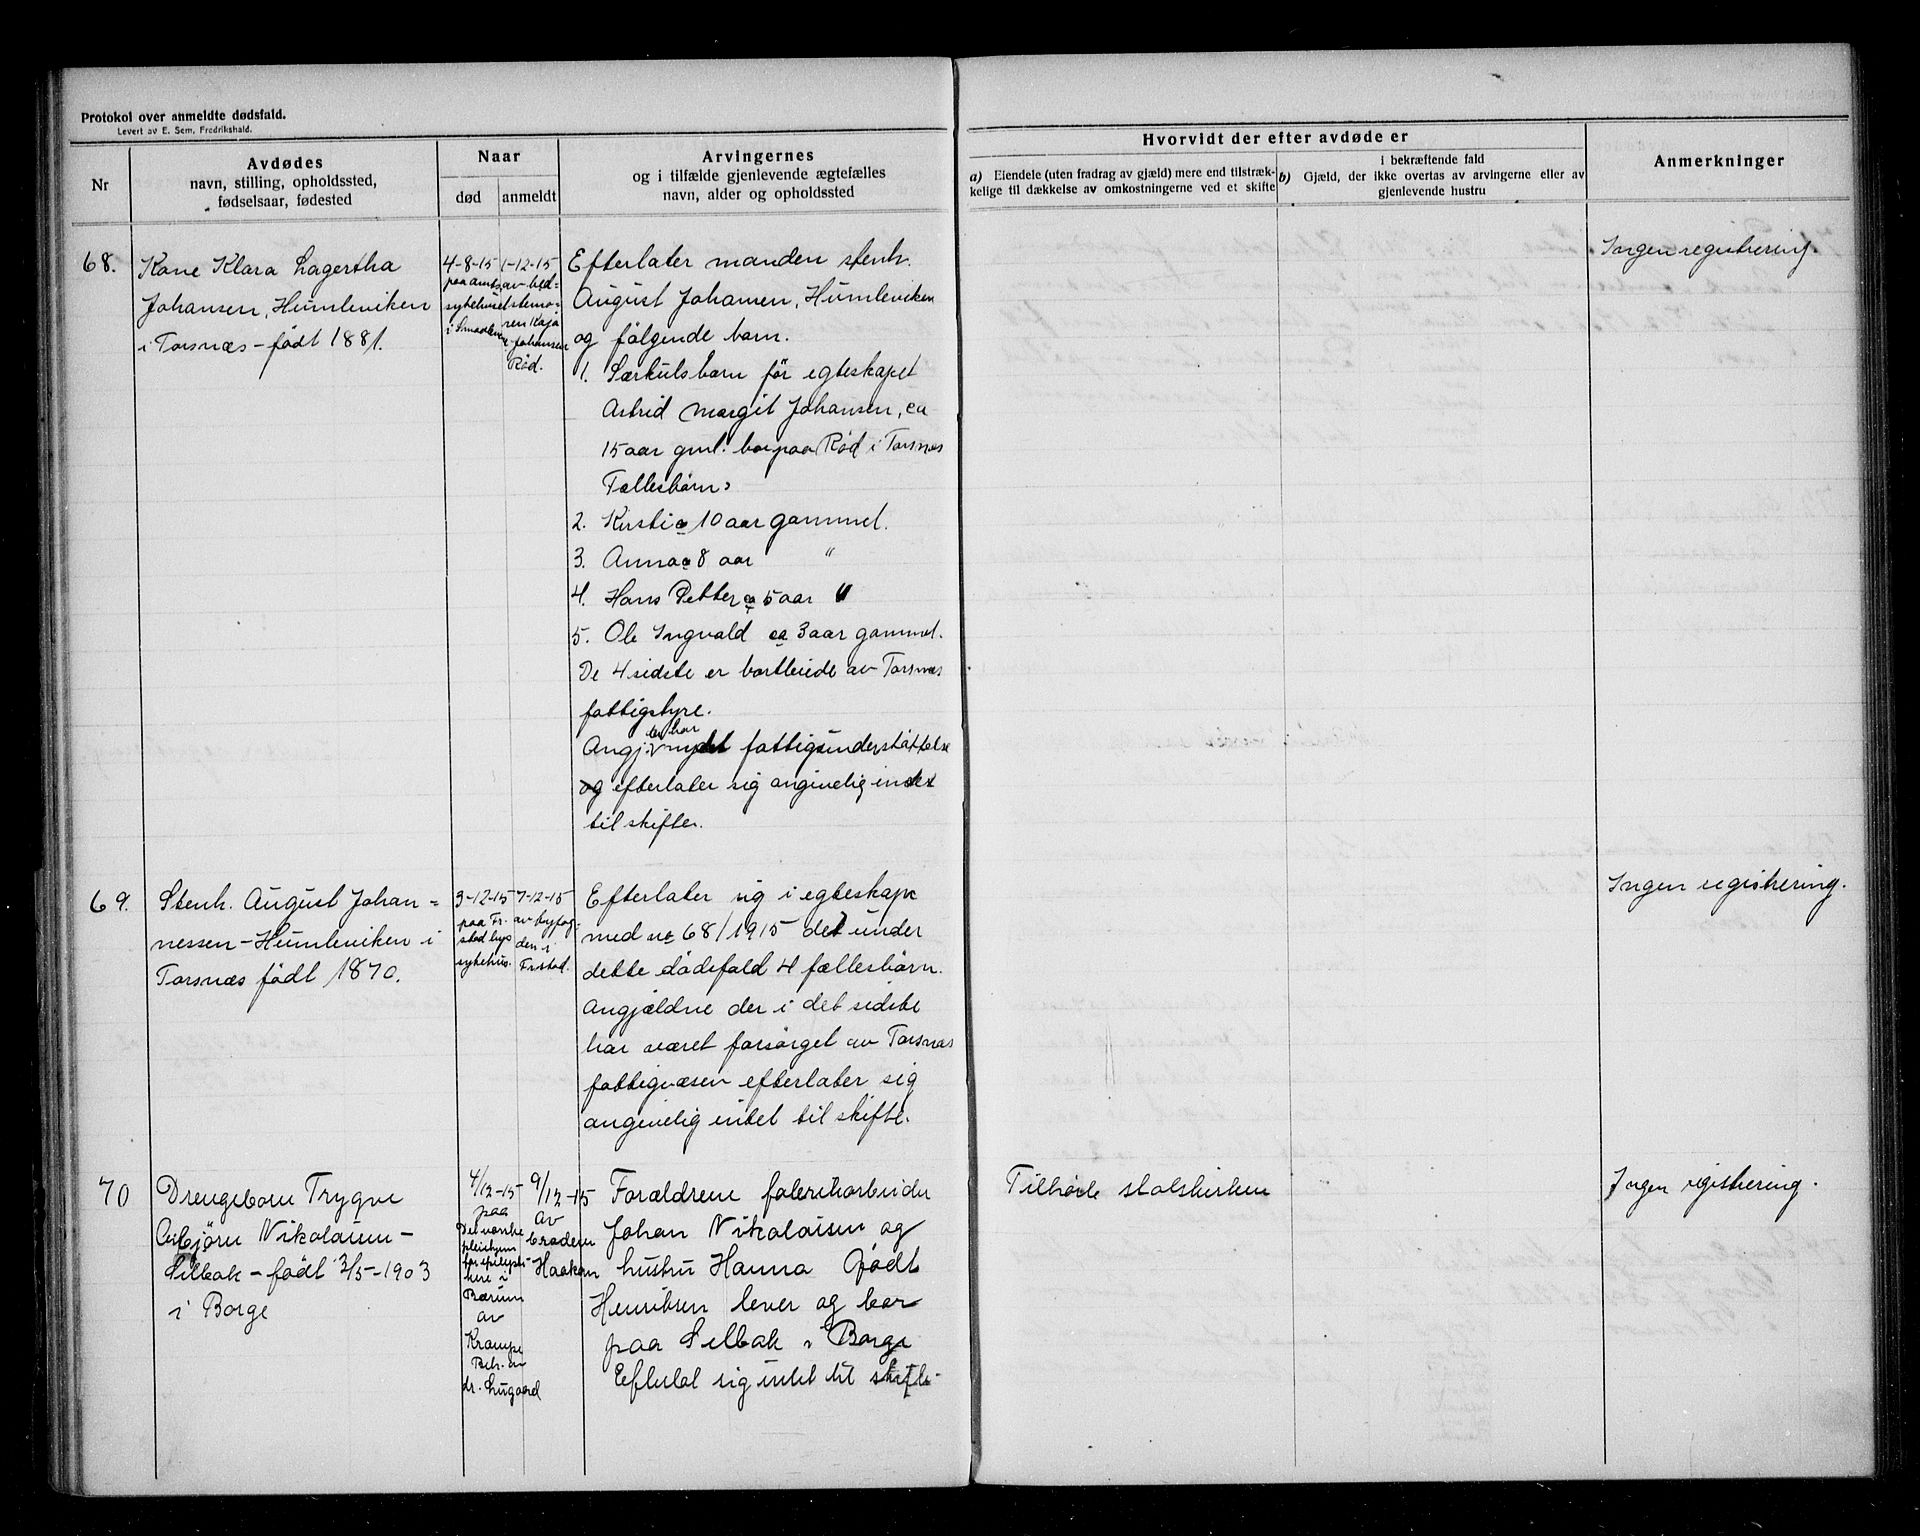 Protokol over anmeldte dødsfald.
Levert av E. Sem, Fredrikshald.
Nr
Avdødes
navn, stilling, opholdssted,
fødselsaar, fødested
Naar
død
anmeldt
Arvingernes
og i tilfælde gjenlevende ægtefælles
navn, alder og opholdssted
Hvorvidt der efter avdøde er
a) Eiendele (uten fradrag av gjæld) mere end tilstræk-
kelige til dækkelse av omkostningerne ved et skifte
b) i bekræftende fald
Gjæld, der ikke overtas av arvingerne eller av
gjenlevende hustru
Anmerkninger
68.
Kone Klara Lagertha
Johansen, Humleviken
i Torsnæs – født 1881.
4-8-15
paa amts
sykehuset
i Smaalenene
1-12-15
av bed=
stemo=
ren Kaja
Johansen
Rød.
Efterlater manden stenh.
August Johansen, Humleviken
og følgende barn.
1. Særkulsbarn før egteskapet
Astrid Margit Johansen, ca
15 aar gml. bor paa Rød i Torsnæs
Fællesbørn:
2. Kirsti ca 10 aar gammel.
3. Anna ca 8 aar "
4. Hans Petter ca 5 aar "
5. Ole Ingvald ca 3 aar gammel.
De 4 sidste er bortleiede av Torsnæs
fattigstyre.
Angj. har nydt fattigunderstøttelse
og efterlater sig angivelig intet
til skifte.
Ingen registrering.
69.
Stenh. August Johan=
nessen – Humleviken i
Torsnæs født 1870.
3-12-15
paa Fr.
stad bys
sykehus.
7-12-15
av byfog-
den i
Fr.stad.
Efterlater sig i egteskape
med nr 68/1915 de under
dette dødsfald 4 fællesbørn.
Angjældne der i det sidste
har været forsørget av Torsnæs
fattigvæsen efterlater sig
angivelig intet til skifte.
Ingen registrering.
70
Drengebarn Trygve
Asbjørn Nikolaisen –
Selbak – født 2/5-1903
i Borge
4/12-15
paa
Det norske
pleiehjem
for epilepti-
kere i
Bærum
av
Krampe
Beh. av
dr. Lugaard
9/12-15
av
broderen
Haakon
Forældrene fabrikarbeider
Johan Nikolaisen og
hustru Hanna født
Henriksen lever og bor
paa Selbak i Borge
Efterlot sig intet til skifte-
Tilhørte statskirken
Ingen registrering.